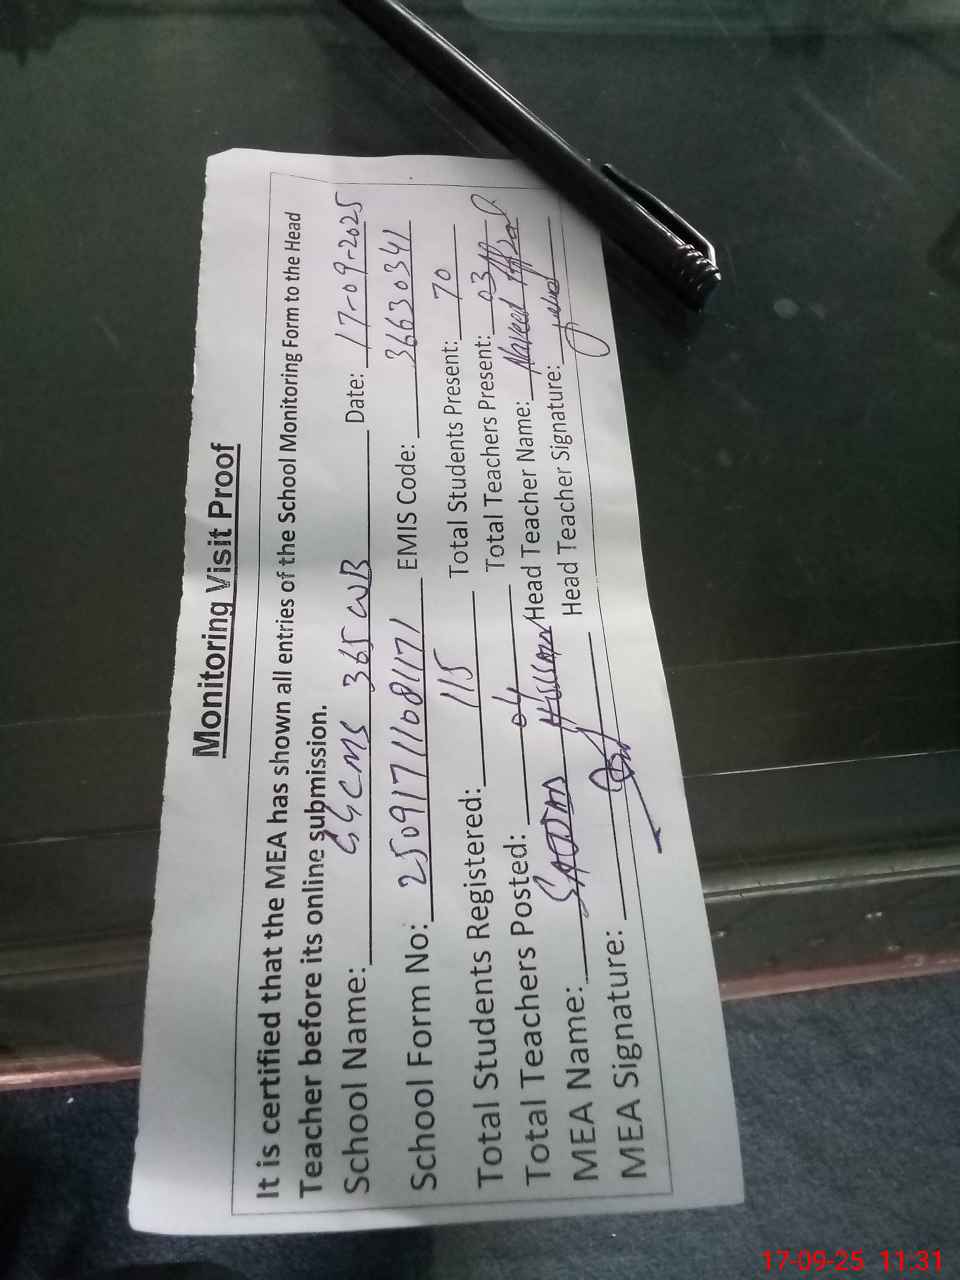 Monitoring Visit Proof
It is certified that the MEA has shown all entries of the School Monitoring Form to the Head
Teacher before its online submission.
School Name: GGCMS 365 WB Date: 17-09-2025
School Form No: 25091711081171 EMIS Code: 36630341
Total Students Registered: 115 Total Students Present: 70
Total Teachers Posted: 04 Total Teachers Present: 03
MEA Name: Hassan Head Teacher Name: Naveed Afzal
MEA Signature: Head Teacher Signature:
17-09-25 11:31